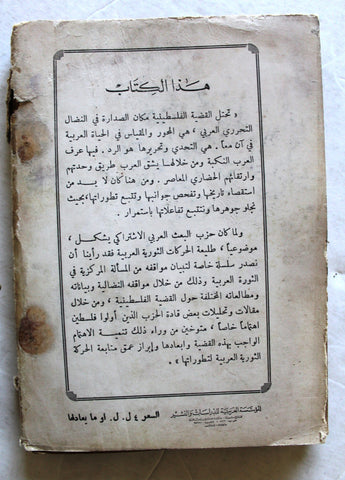 هذا الكتاب
« تحتل القضية الفلسطينية مكان الصدارة في النضال
التحرري العربي ، هي المحور والمقياس في الحياة العربية
في آن معاً . هي التحدي وتحريرها هو الرد . فيها عرف
العرب النكبة ومن خلالها يشق العرب طريق وحدتهم
وارتقائهم الحضاري المعاصر . ومن هنا كان لا بد من
استقصاء تاريخها وتفحص جوانبها وتتبع تطوراتها ، بحيث
نجلو جوهرها ونتتبع تفاعلاتها باستمرار .
ولما كان حزب البعث العربي الاشتراكي يشكل ،
موضوعياً ، طليعة الحركات الثورية العربية فقد رأينا أن
نصدر سلسلة خاصة لتبيان مواقفه من المسألة المركزية في
الثورة العربية وذلك من خلال مواقفه النضالية وبياناته
ومطالعاته المختلفة حول القضية الفلسطينية ، ومن خلال
مقالات وتحليلات بعض قادة الحزب الذين أولوا فلسطين
اهتماماً خاصاً ، متوخين من وراء ذلك تنمية الاهتمام
الواجب بهذه القضية وابعادها وإبراز عمق متابعة الحركة
الثورية العربية لتطوراتها » .
المؤسسة العربية للدراسات والنشر
السعر ٤ ل. ل. او ما يعادلها